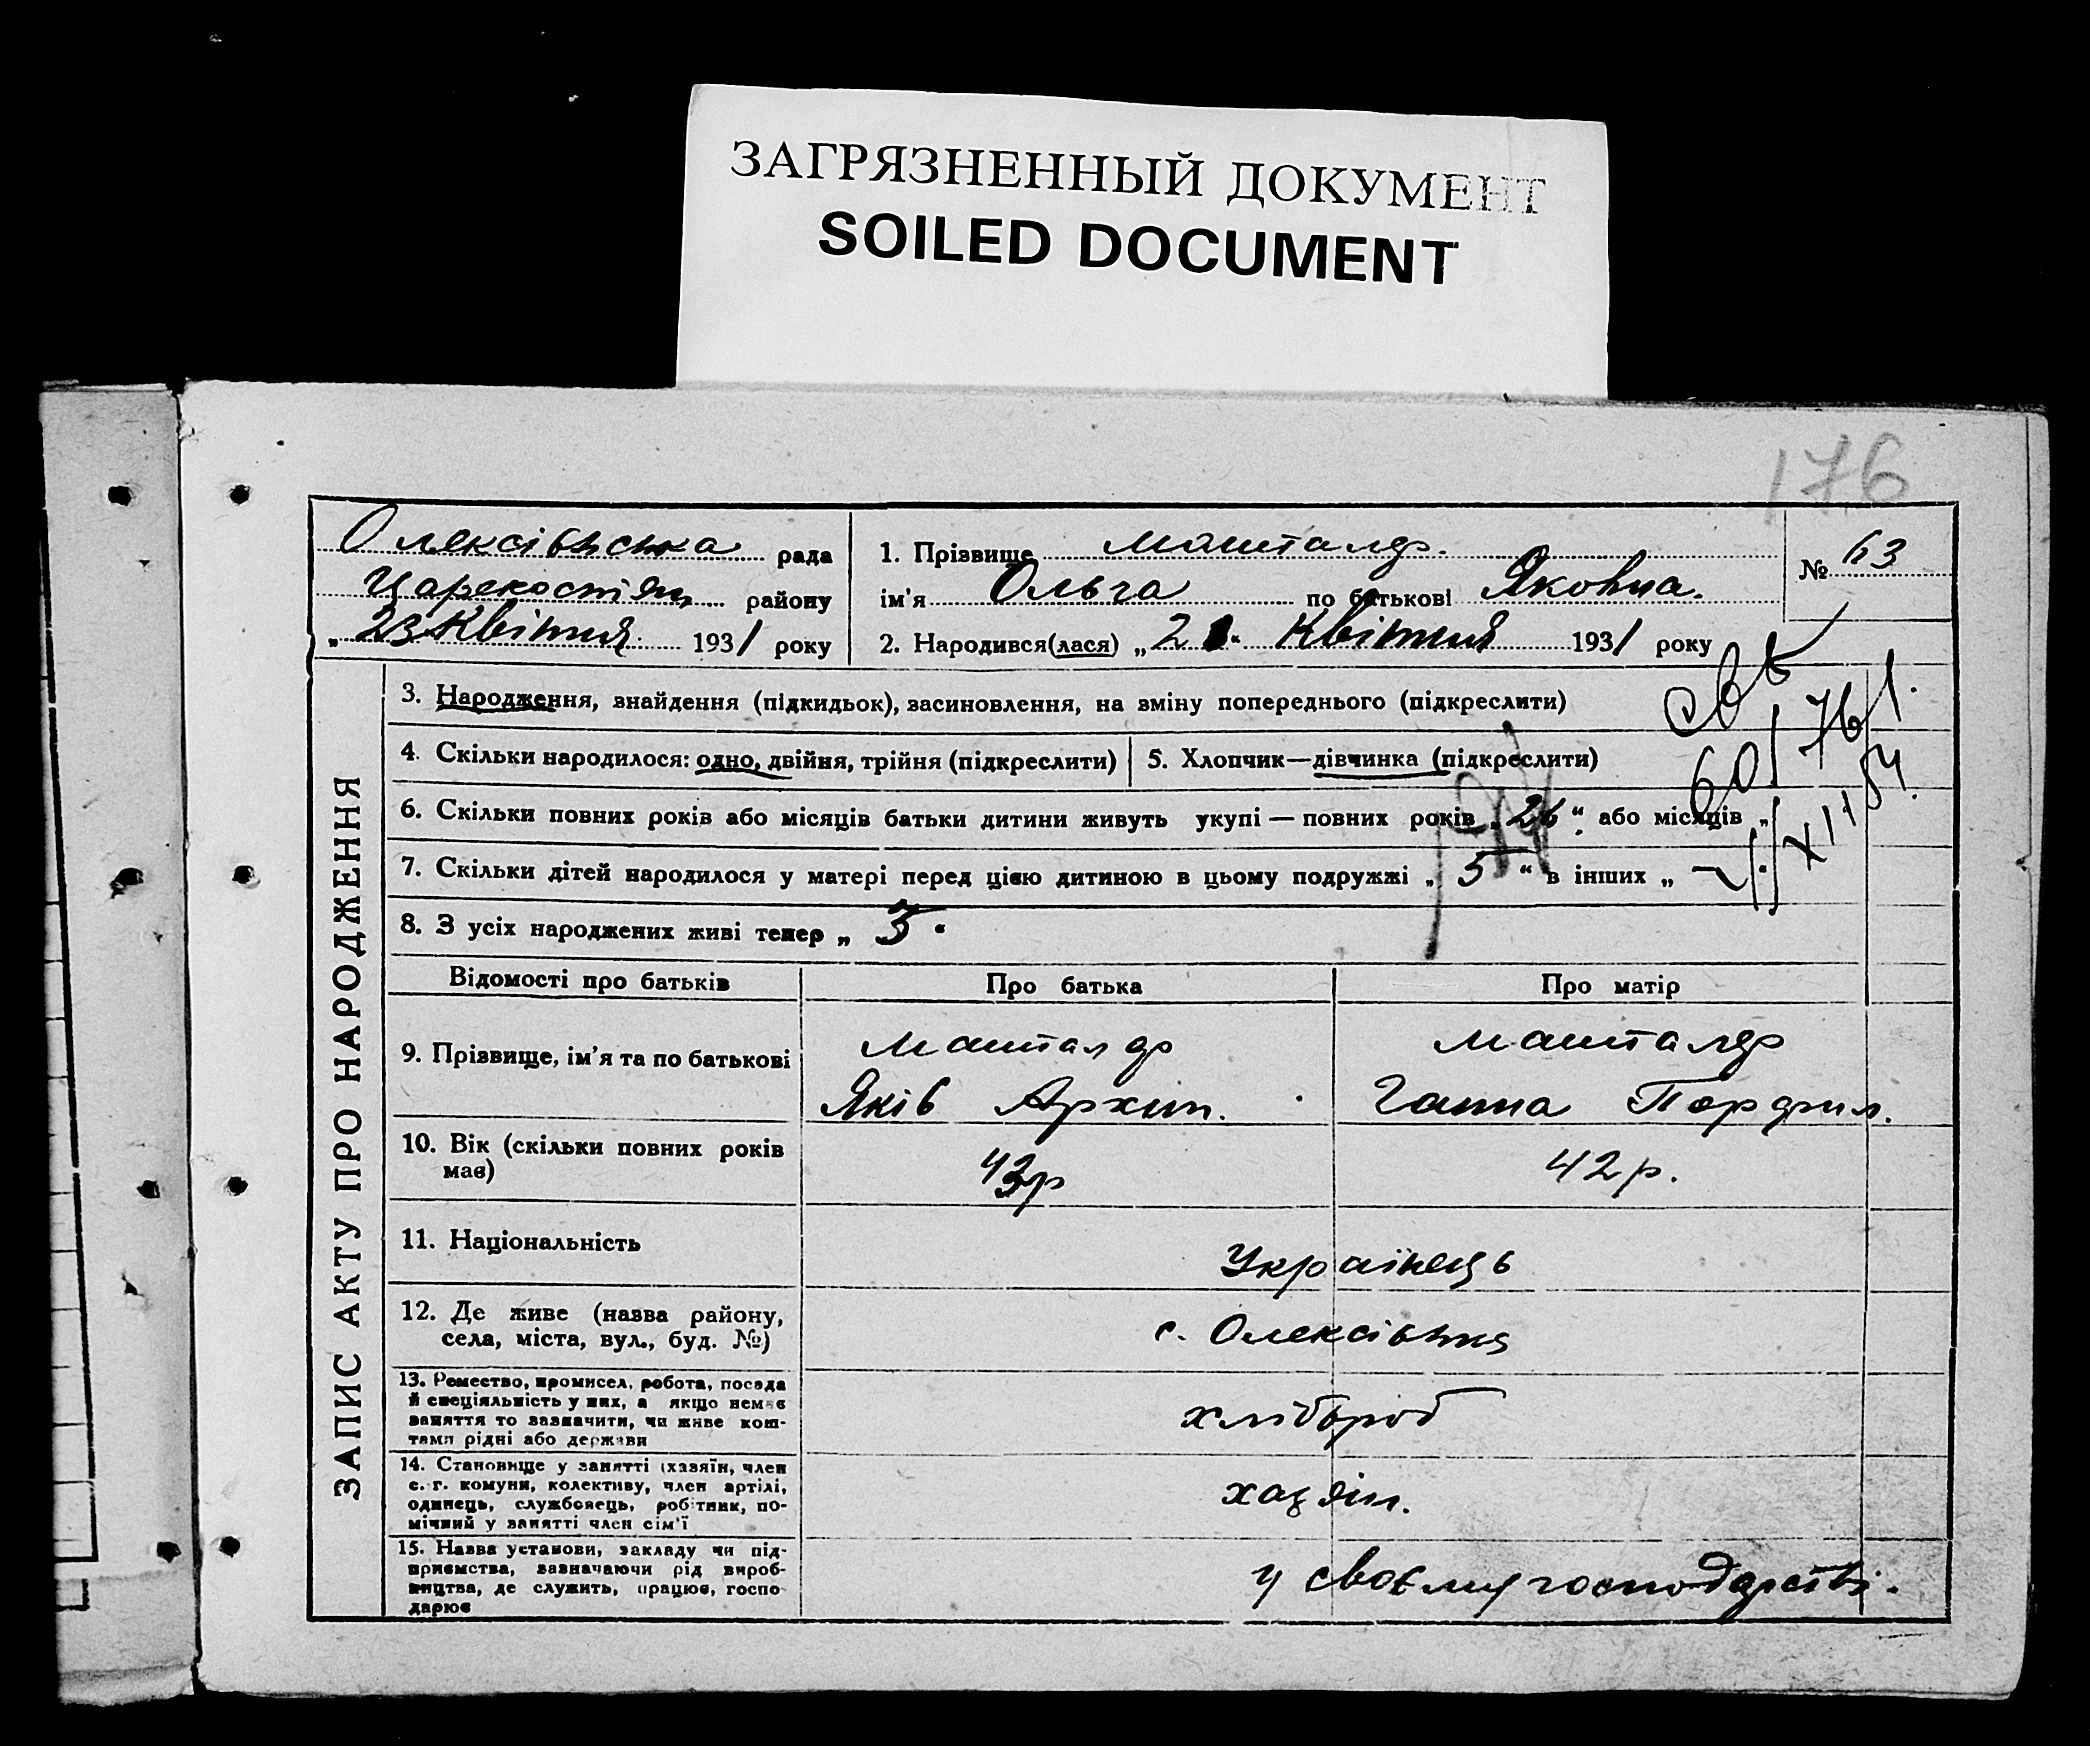 ЗАГРЯЗНЕННЫЙ ДОКУМЕНТ
SOILED DOCUMENT
176
Олексівська рада
району
„ 23 Квітня 1931 року
1. Прізвище Машталяр.
ім'я Ольга по батькові Яковна.
2. Народився(лася) „ 21 Квітня 1931 року
№ 63
ЗАПИС АКТУ ПРО НАРОДЖЕННЯ
3. Народження, знайдення (підкидьок), засиновлення, на зміну попереднього (підкреслити)
4. Скільки народилося: одно, двійня, трійня (підкреслити)
5. Хлопчик—дівчинка (підкреслити)
6. Скільки повних років або місяців батьки дитини живуть укупі — повних років „ 26 “ або місяців „
7. Скільки дітей народилося у матері перед цією дитиною в цьому подружжі „ 5 “ в інших „ —
8. З усіх народжених живі тепер „ 3 “
Відомості про батьків
Про батька
Про матір
9. Прізвище, ім'я та по батькові
Машталяр
Яків Архип.
Машталяр
Ганна Порфил.
10. Вік (скільки повних років
має)
43р
42 р.
11. Національність
Українець
12. Де живе (назва району,
села, міста, вул., буд. №)
с. Олексівка
13. Ремество, промисел, робота, посада
й спеціяльність у них, а якщо немає
заняття то зазначити, чи живе кош-
тами рідні або держави
хлібороб
14. Становище у занятті (хазяїн, член
с.-г. комуни, колективу, член артілі,
одинець, службовець, робітник, по-
мічний у занятті член сім'ї
хазяїн.
15. Назва установи, закладу чи під-
приємства, зазначаючи рід вироб-
ництва, де служить, працює, госпо-
дарює
у своєму господарстві.